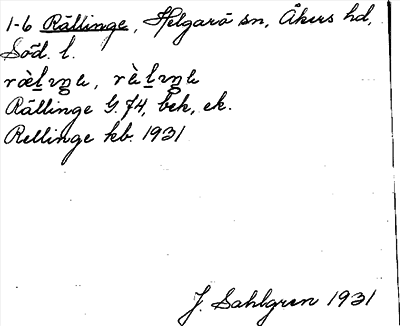 1-6 Rällinge, Helgarö sn, Åkers hd,
Söd. l.
Rällinge G. 74, bek, ek.
Rellinge kb. 1931
J. Sahlgren 1931